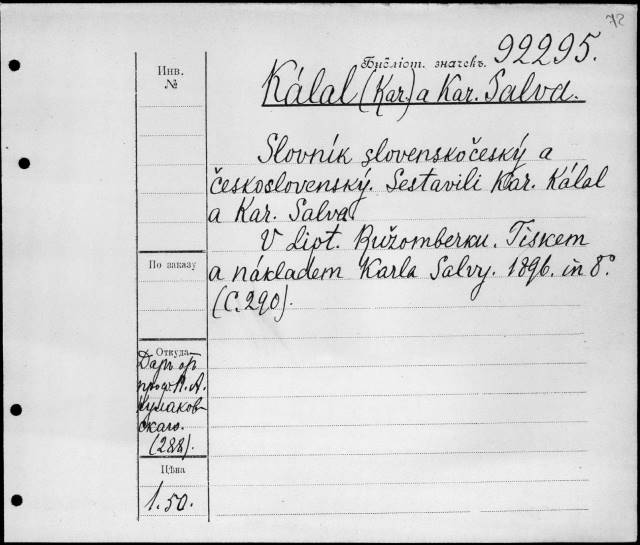 72
Библіот. значекъ. 92295.
Инв.
№
Kálal (Kar.) a Kar. Salva.
Slovník slovenskočeský a
československý. Sestavili Kar. Kálal
a Kar. Salva
V lipt. Ružomberku. Tiskem
По заказу
a nákladem Karla Salvy. 1896. in 8°.
(C. 290).
Откуда
Даръ отъ
проф. П. А.
Кулаков-
скаго.
(288).
Цѣна
1.50.